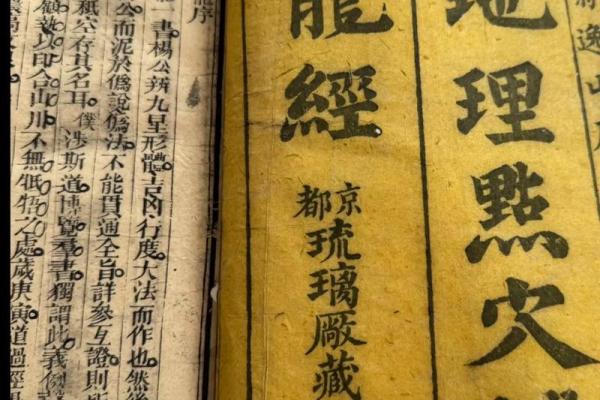 逸山
地理點穴
龍經
京都
琉璃廠藏
龍序
書楊公辨九星形體吉凶行度大法而作也然後
而泥於僞說僞法不能貫通全旨詳參互證則所
紙空存其名耳僕涉斯道博覽羣書獨謂此義
執以印合山川不無牴牾之處歲庚寅道過經